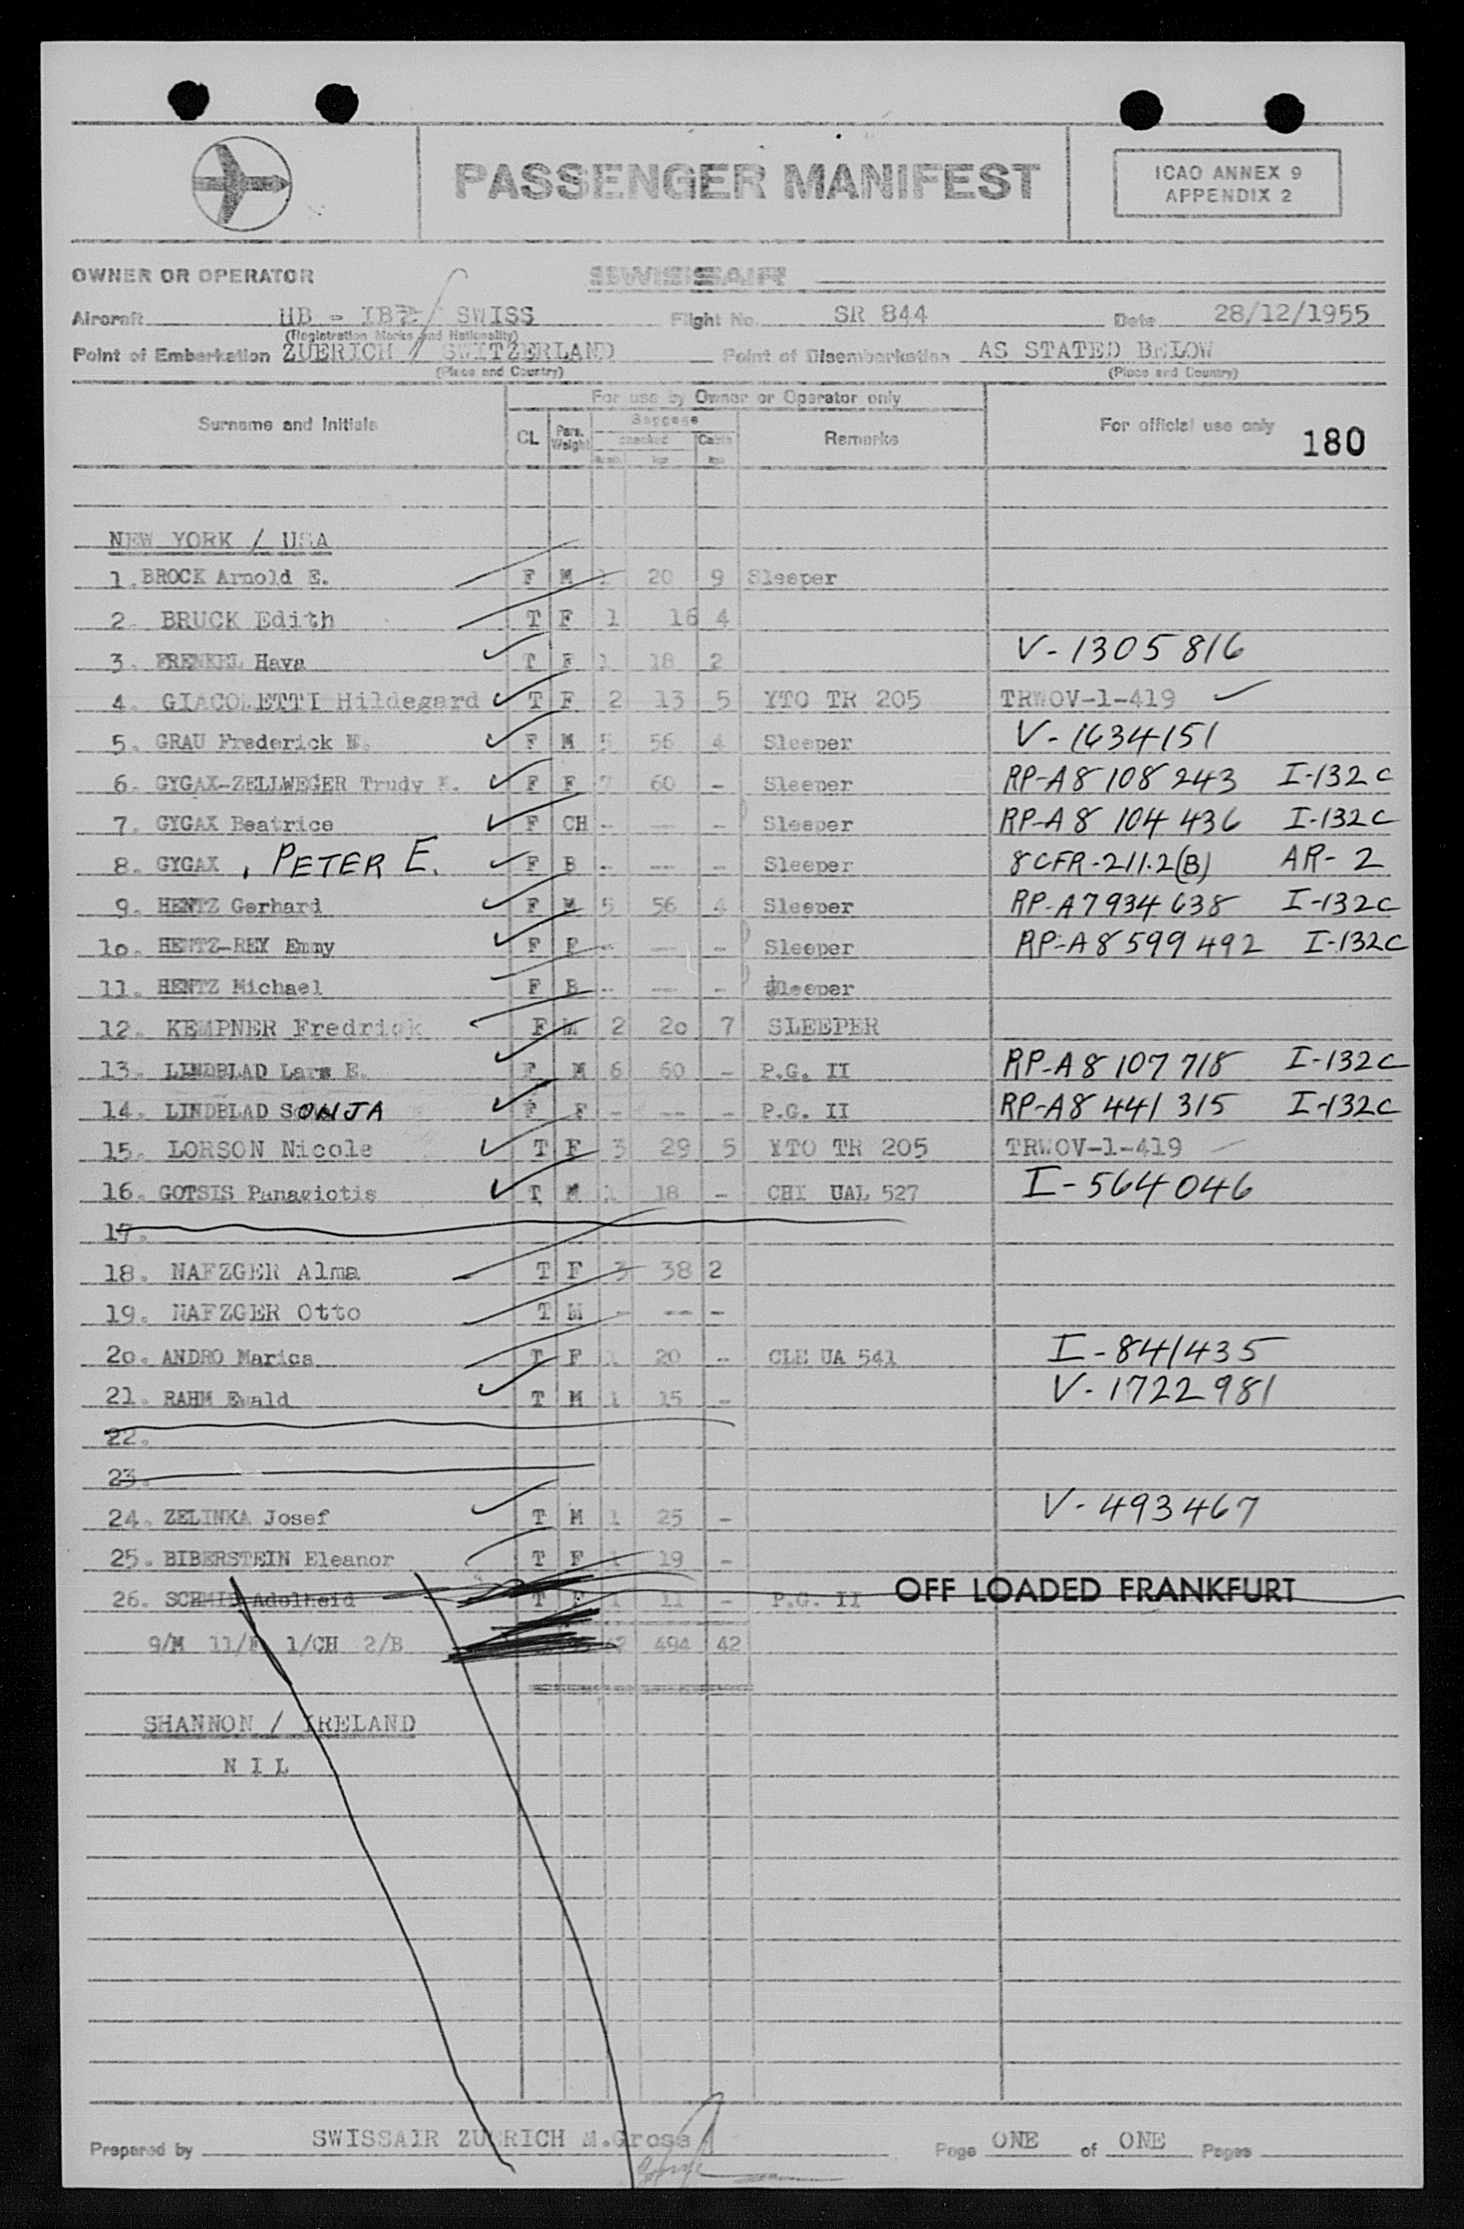 PASSENGER MANIFEST
ICAO ANNEX 9
APPENDIX 2
OWNER OR OPERATOR SWISSAIR
Aircraft HB - / SWISS Flight No. SR 844 Date 28/12/1955
(Registration Marks and Nationality)
Point of Embarkation ZUERICH / SWITZERLAND Point of Disembarkation AS STATED BELOW
(Place and Country) (Place and Country)
For use by Owner or Operator only
Surname and Initials CL Pass. Weight Baggage checked Cabin Remarks For official use only 180
Numb. kgs kgs
NEW YORK / USA
1. BROCK Arnold E. F M 1 20 9 Sleeper
2. BRUCK Edith T F 1 16 4
3. FRENKEL Hava T F 1 18 2 V-1305816
4. GIACOLETTI Hildegard T F 2 13 5 YTO TR 205 TRWOV-1-419
5. GRAU Frederick F M 5 56 4 Sleeper V-1634151
6. GYGAX-ZELLWEGER Trudy F F 7 60 - Sleeper RP-A8 108 243 I-132C
7. GYGAX Beatrice F CH - -- - Sleeper RP-A8 104 436 I-132C
8. GYGAX , PETER E. F B - -- - Sleeper 8CFR-211.2(B) AR-2
9. HENTZ Gerhard F M 5 56 4 Sleeper RP-A7934638 I-132C
10. HENTZ-REY Emmy F F - -- - Sleeper RP-A8599492 I-132C
11. HENTZ Michael F B - -- - Sleeper
12. KEMPNER Fredrick F M 2 20 7 SLEEPER
13. LINDBLAD Lars E. F M 6 60 - P.G. II RP-A8 107 718 I-132C
14. LINDBLAD SONJA F F - -- - P.G. II RP-A8 441 315 I-132C
15. LORSON Nicole T F 3 29 5 YTO TR 205 TRWOV-1-419
16. GOTSIS Panagiotis T M 1 18 - CHI UAL 527 I-564046
17.
18. NAFZGER Alma T F 3 38 2
19. NAFZGER Otto T M - -- -
20. ANDRO Marica T F 1 20 - CLE UA 541 I-841435
21. RAHM Ewald T M 1 15 - V-1722981
22.
23.
24. ZELINKA Josef T M 1 25 - V-493467
25. BIBERSTEIN Eleanor T F 1 19 -
26. SCHMID Adelheid T F 1 11 - P.G. II OFF LOADED FRANKFURT
9/M 11/F 1/CH 2/B 494 42
SHANNON / IRELAND
N I L
Prepared by SWISSAIR ZUERICH M.Gross Page ONE of ONE Pages